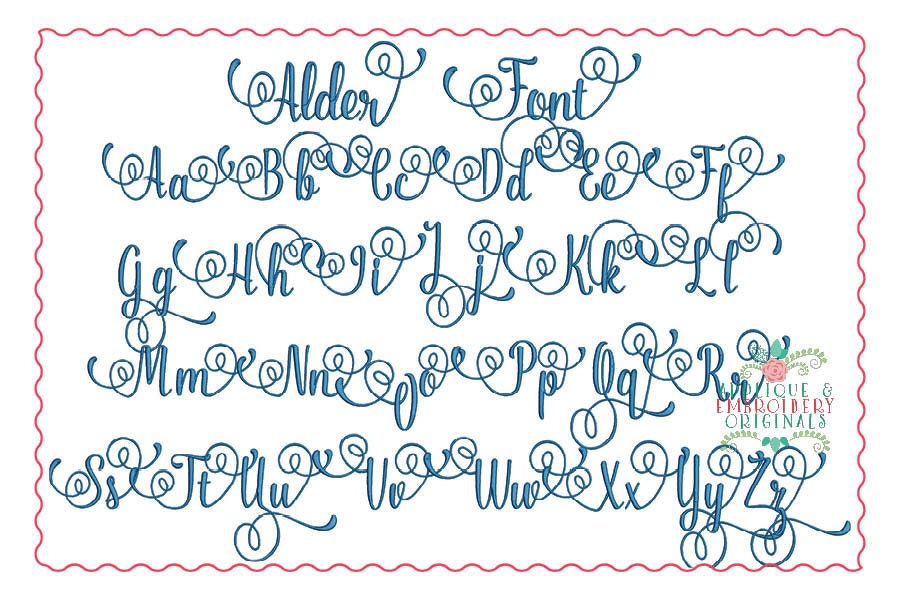 Alder Font
Aa Bb Cc Dd Ee Ff
Gg Hh Ii Jj Kk Ll
Mm Nn Oo Pp Qq Rr
Ss Tt Uu Vv Ww Xx Yy Zz
APPLIQUE &
EMBROIDERY
ORIGINALS